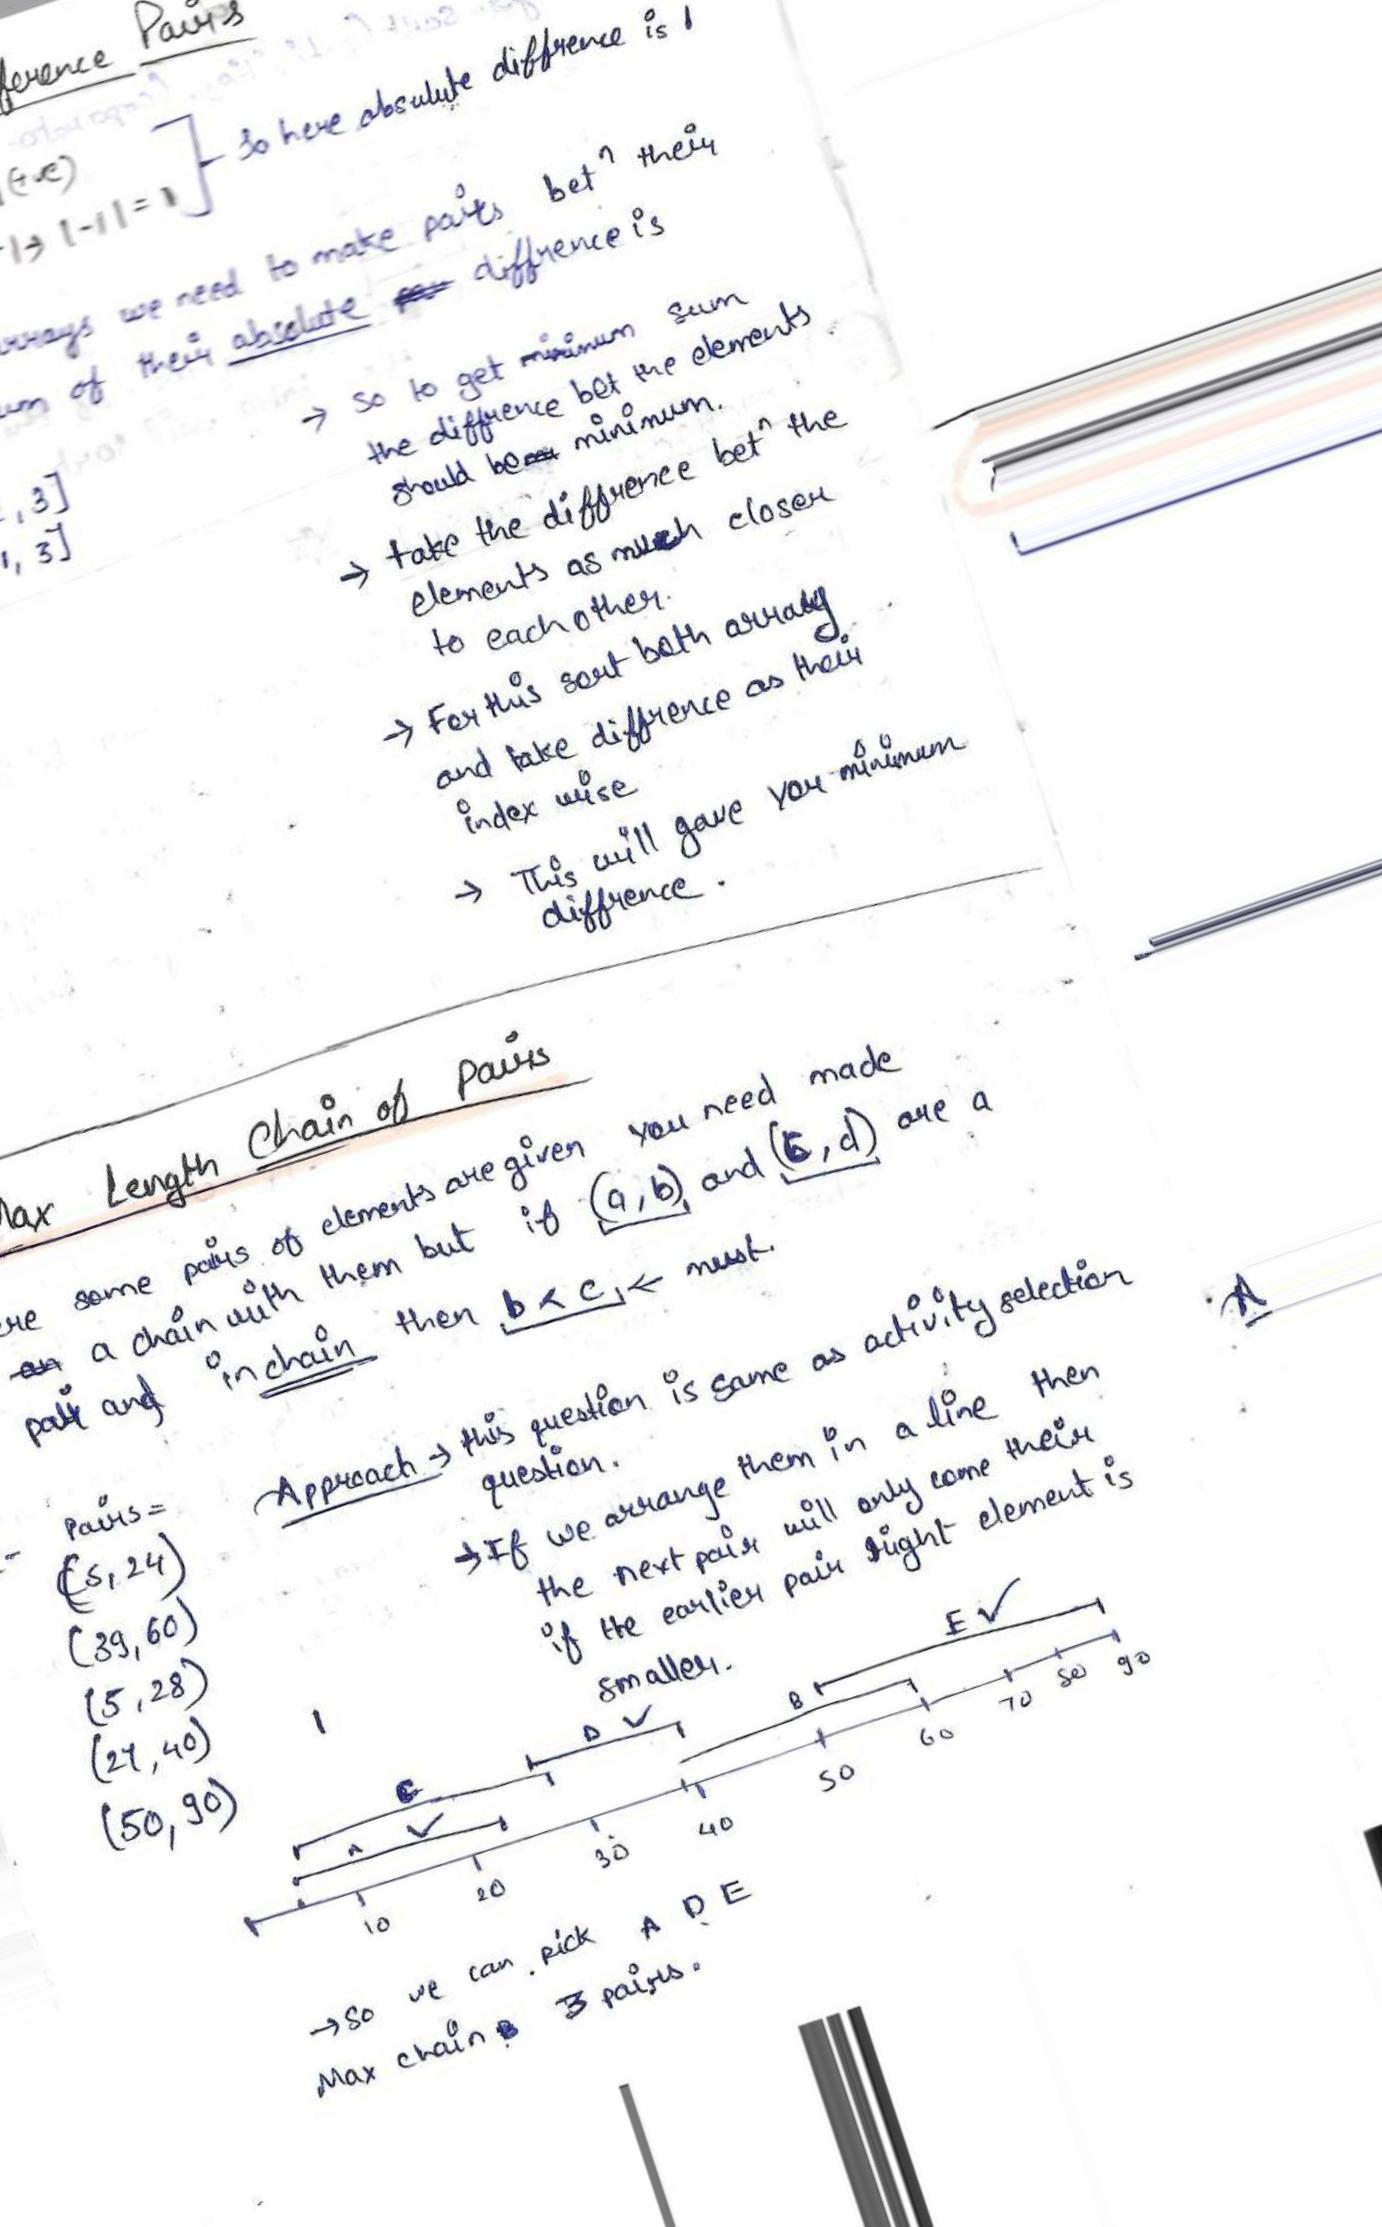 ference Pairs
(+ve)
-1 → |-1| = 1
So here absolute diffrence is 1
rrays we need to make pairs betⁿ their
um of their absolute diffrence is
, 3]
1, 3]
→ So to get minimum sum
the diffrence bet the elements
should be minimum.
→ take the diffrence betⁿ the
elements as much closer
to each other.
→ For this sort both array
and take diffrence as their
index wise
→ This will gave you minimum
diffrence.
Max Length Chain of Pairs
ere some pairs of elements are given you need made
a chain with them but if (a, b) and (c, d) are a
pair and in chain then b < c, ← must.
Approach → this question is same as activity selection
question.
→ If we arrange them in a line then
the next pair will only come their
if the earlier pair right element is
smaller.
Pairs =
(5, 24)
(39, 60)
(5, 28)
(27, 40)
(50, 90)
A
E ✓
B
D ✓
C
A ✓
10 20 30 40 50 60 70 80 90
→ So we can pick A D E
Max chain 3 pairs.